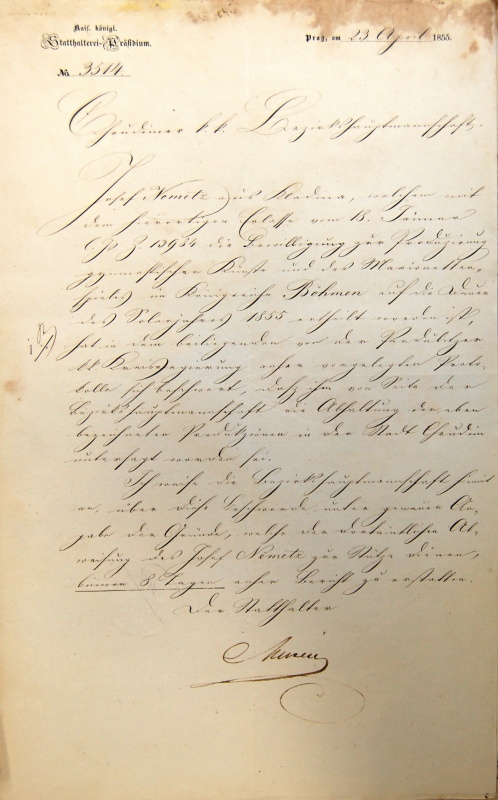 Kais. königl.
Statthalterei-Präsidium.
Prag, am 23 April 1855.
No. 3514.
Chrudimer k. k. Bezirkshauptmannschaft.
Josef Nemetz aus Kladina, welchem mit
dem hierortigen Erlasse vom 18. Jänner
Z 13934 die Bewilligung zur Produzirung
gymnastischer Künste und des Marionetten-
spieles im Königreiche Böhmen auf die Dauer
des Solarjahres 1855 ertheilt worden ist,
hat in dem beiliegenden von der Pardubitzer
k k Kreisregierung anher vorgelegten Proto-
kolle sich beschwert, daß ihm von Seite der
Bezirkshauptmannschaft die Abhaltung der eben
bezeichneten Produkzionen in der Stadt Chrudim
untersagt worden sei.
Ich weise die Bezirkshauptmannschaft hiemit
an, über diese Beschwerde unter genauer An-
gabe der Gründe, welche der dortämtlichen Ab-
weisung des Josef Nemetz zur Stütze dienen,
binnen 8 Tagen anher Bericht zu erstatten.
Der Statthalter